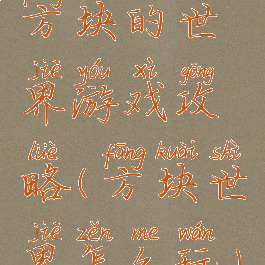 方块的世
jiè yóu xì gōng
界游戏攻
lüè fāng kuài shì
略(方块世
jiè zěn me wán
界怎么玩)